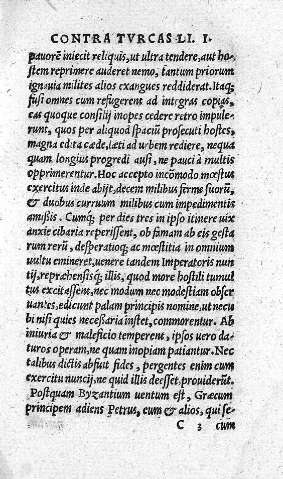 CONTRA TVRCAS LI. I.
pauorē iniecit reliquis, ut ultra tendere, aut ho-
stem reprimere auderet nemo, tantum priorum
ignauia milites alios exangues reddiderat. Itaq;
fusi omnes cum refugerent ad integras copias,
eas quoque consilij inopes cedere retro impule-
runt, quos per aliquod spaciū prosecuti hostes,
magna edita cæde, læti ad urbem rediere, nequa
quam longius progredi ausi, ne pauci à multis
opprimerentur. Hoc accepto incōmodo mœstus
exercitus inde abijt, decem milibus ferme suorū,
& duobus curruum milibus cum impedimentis
amissis. Cumq; per dies tres in ipso itinere uix
anxie cibaria reperissent, ob famam ab eis gesta
rum rerū, desperatioq; ac mœstitia in omnium
uultu emineret, uenere tandem Imperatoris nun
tij, repræhensisq; illis, quod more hostili tumul
tus excitassent, nec modum nec modestiam obser
uantes, edicunt palam principis nomine, ut necu
bi nisi quies necessaria instet, commorentur. Ab
iniuria & maleficio temperent, ipsos uero da-
turos operam, ne quam inopiam patiantur. Nec
talibus dictis abfuit fides, pergentes enim cum
exercitu nuncij, ne quid illis deesset, prouiderūt.
Postquam Byzantium uentum est, Græcum
principem adiens Petrus, cum & alios, qui se-
C 3 cum